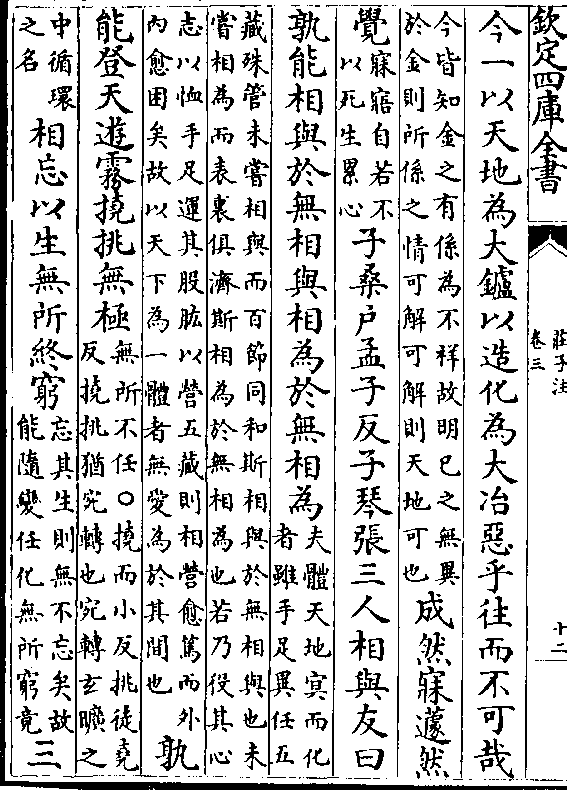 欽定四庫全書
莊子注
卷三
十二
今一以天地為大鑪以造化為大冶惡乎往而不可哉
今皆知金之有係為不祥故明已之無異
於金則所係之情可解可解則天地可也
成然寐蘧然
覺
寐寤自若不
以死生累心
子桑户孟子反子琴張三人相與友曰
孰能相與於無相與相為於無相為
夫體天地冥而化
者雖手足異任五
藏殊管未嘗相與而百節同和斯相與於無相與也未
嘗相為而表裏俱濟斯相為於無相為也若乃役其心
志以恤手足運其股肱以營五藏則相營愈篤而外
內愈困矣故以天下為一體者無愛為於其間也
孰
能登天遊霧撓挑無極
無所不任○撓而小反挑徒堯
反撓挑猶宛轉也宛轉玄曠之
中循環
之名
相忘以生無所終窮
忘其生則無不忘矣故
能隨變任化無所窮竟
三